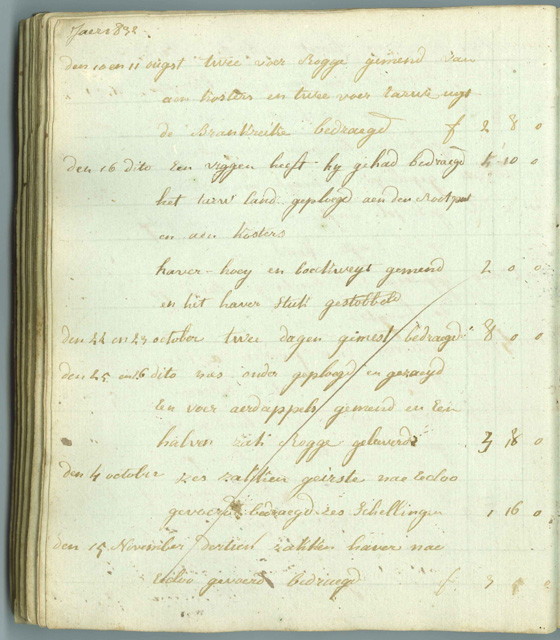 Jaer 1832
den 10 en 11 ougst twee voer Rogge gemend van
aen kosters en twee voer tarwe uyt
de bedraegd f 2 8 0
den 16 dito Een viggen heeft hy gehad bedraegd 4 10 0
het tarw land geploegd aen den
en aen Kosters
haver - hoey en boekweyt gemend 2 0 0
en het haver stuk gestobbeld
den 22 en 23 october twee dagen gemest bedraegd 8 0 0
den 25 en 26 dito nog onder geploegd en gezaeyd
En voer aerdappels gemend en Een
halven zak Rogge geleverd 3 18 0
den 4 october zes zakken geirste nae Eecloo
gevoerd bedraegd zes Schellingen 1 16 0
den 15 November dertien zakken haver nae
Ecloo gevoerd bedraegd f 3